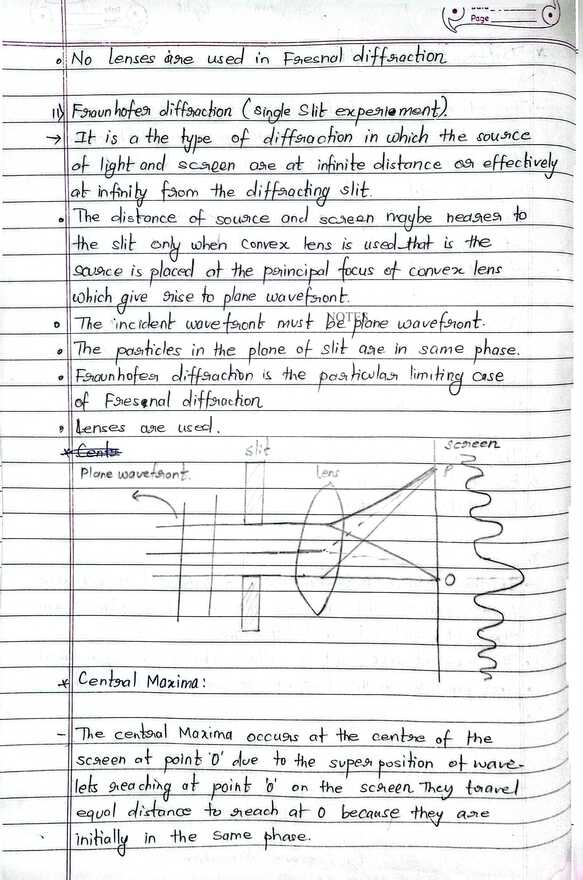 Page
• No lenses are used in Fresnal diffraction
11) Fraunhofer diffraction (single slit experiement).
→ It is a the type of diffraction in which the source
of light and screen are at infinite distance or effectively
at infinity from the diffracting slit.
• The distance of source and screen maybe nearer to
the slit only when convex lens is used that is the
source is placed at the principal focus of convex lens
which give rise to plane wavefront.
• The incident wavefront must be plane wavefront.
NOTES
• The particles in the plane of slit are in same phase.
• Fraunhofer diffraction is the particular limiting case
of Fresnal diffraction
• Lenses are used.
* Centr
slit
screen
Plane wavefront.
lens
P
O
* Central Maxima:
- The central Maxima occurs at the centre of the
screen at point 'O' due to the super position of wave-
lets reaching at point 'O' on the screen They travel
equal distance to reach at O because they are
initially in the same phase.